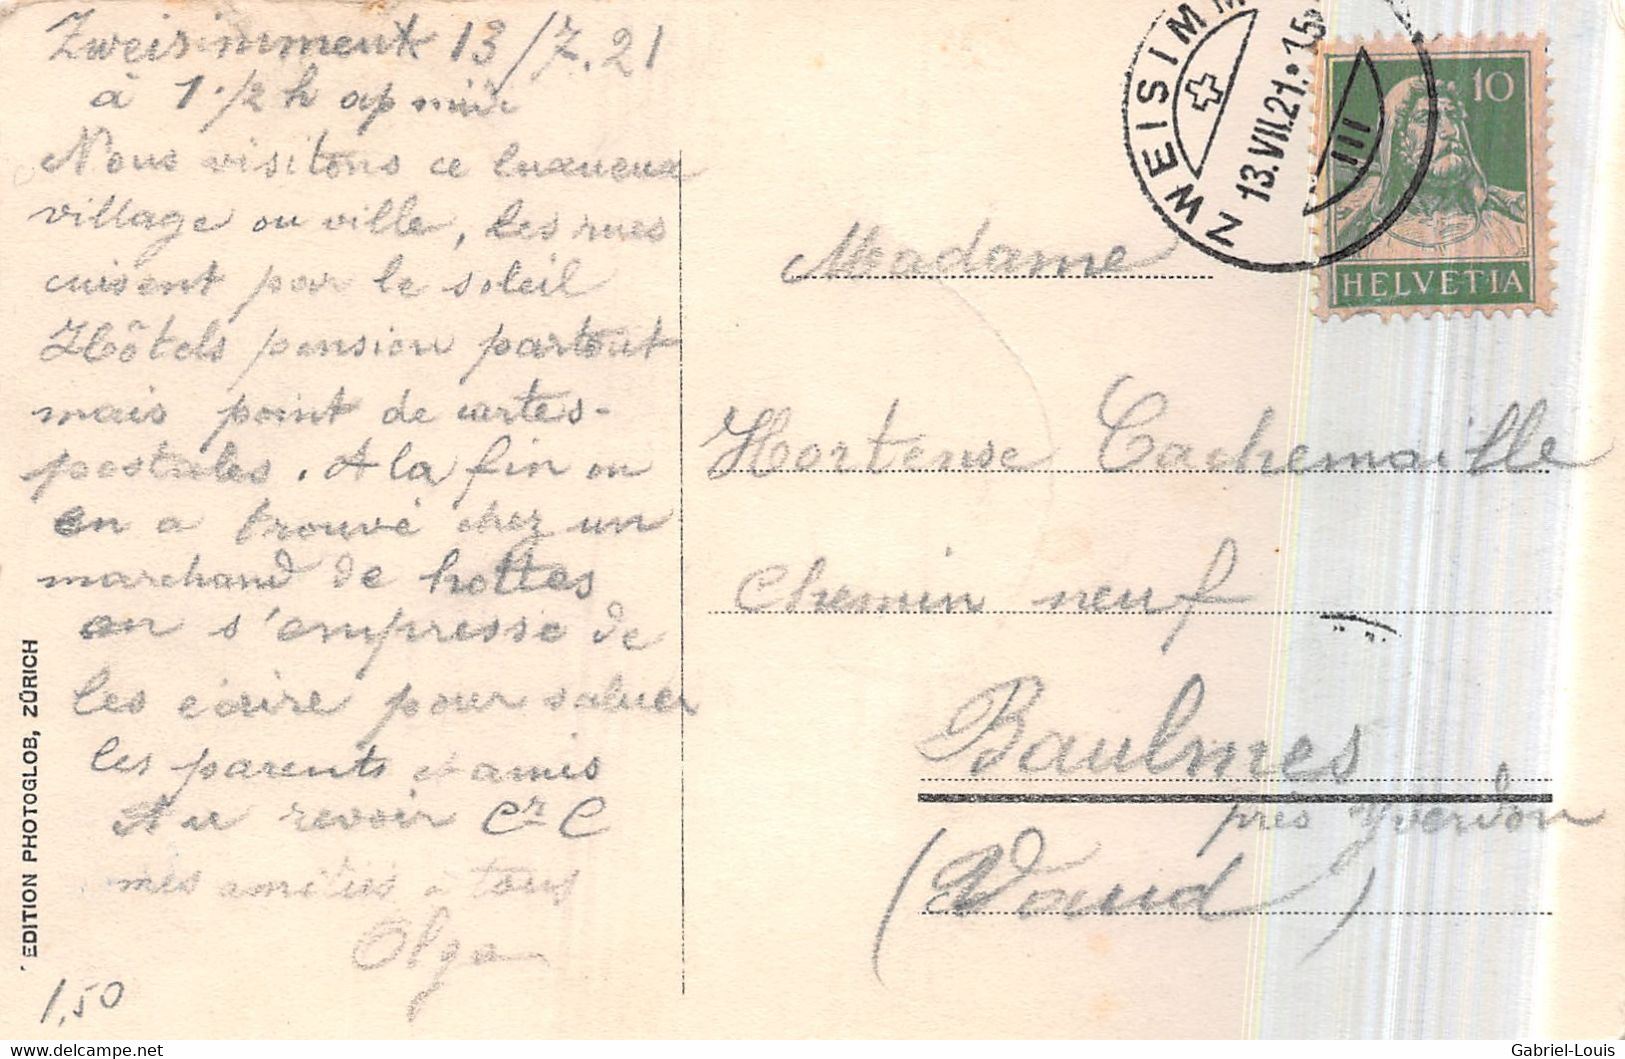 Zweisimment 13/7.21
à 1 1/2 h ap midi
Nous visitons ce luxueux
village ou ville, les rues
cuisent par le soleil
Hôtels pension partout
mais point de cartes-
postales. A la fin on
en a trouvé chez un
marchand de hottes
on s'empresse de
les écrire pour saluer
les parents et amis
Au revoir Cz C
mes amitiés à tous
Olga
1,50
EDITION PHOTOGLOB, ZÜRICH
ZWEISIMM
13.VII.21.15
III
10
HELVETIA
Madame
Hortense Cachemaille
Chemin neuf
Baulmes
près Yverdon
(Vaud)
Gabriel-Louis